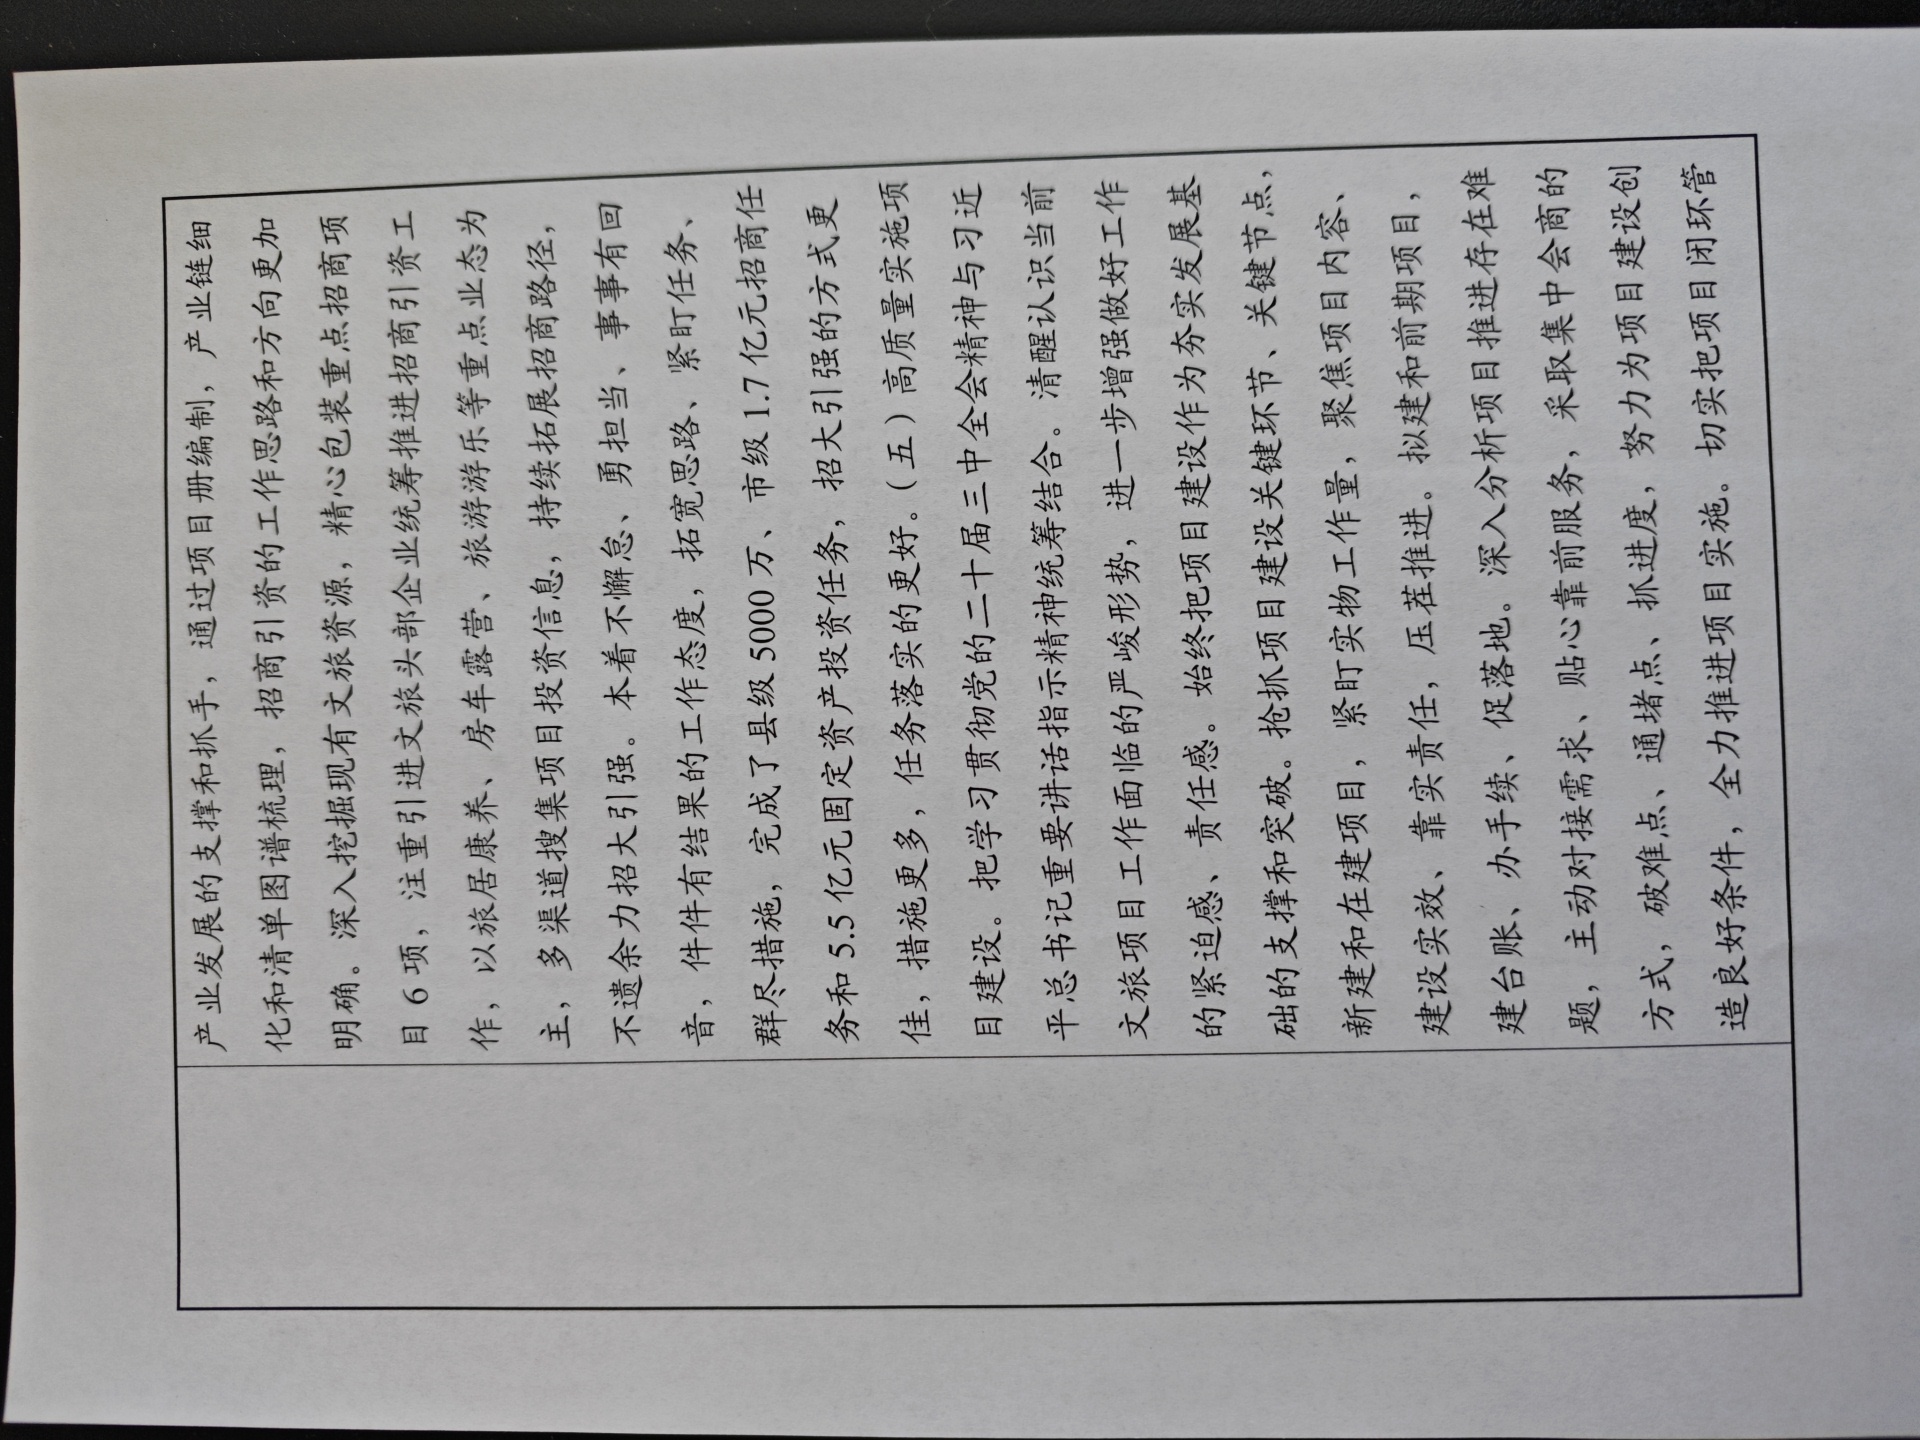 产业发展的支撑和抓手，通过项目册编制，产业链细
化和清单图谱梳理，招商引资的工作思路和方向更加
明确。深入挖掘现有文旅资源，精心包装重点招商项
目 6 项，注重引进文旅头部企业统筹推进招商引资工
作，以旅居康养、房车露营、旅游游乐等重点业态为
主，多渠道搜集项目投资信息，持续拓展招商路径，
不遗余力招大引强。本着不懈怠、勇担当、事事有回
音，件件有结果的工作态度，拓宽思路、紧盯任务、
群尽措施，完成了县级 5000 万、市级 1.7 亿元招商任
务和 5.5 亿元固定资产投资任务，招大引强的方式更
佳，措施更多，任务落实的更好。（五）高质量实施项
目建设。把学习贯彻党的二十届三中全会精神与习近
平总书记重要讲话指示精神统筹结合。清醒认识当前
文旅项目工作面临的严峻形势，进一步增强做好工作
的紧迫感、责任感。始终把项目建设作为夯实发展基
础的支撑和突破。抢抓项目建设关键环节、关键节点，
新建和在建项目，紧盯实物工作量，聚焦项目内容、
建设实效、靠实责任，压茬推进。拟建和前期项目，
建台账、办手续、促落地。深入分析项目推进存在难
题，主动对接需求、贴心靠前服务，采取集中会商的
方式，破难点、通堵点、抓进度，努力为项目建设创
造良好条件，全力推进项目实施。切实把项目闭环管